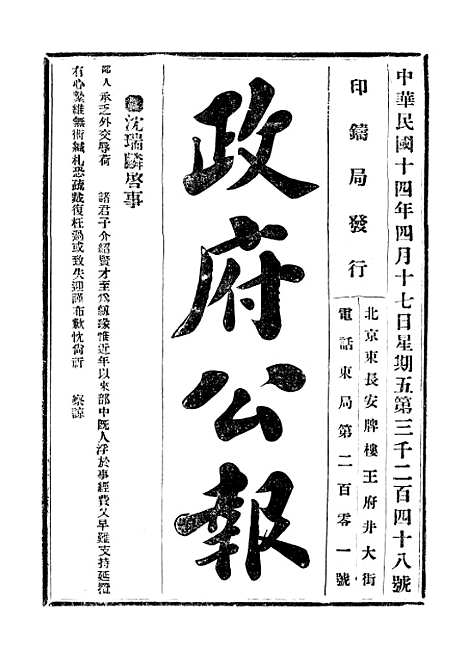 中華民國十四年四月十七日星期五第三千二百四十八號
印鑄局發行
北京東長安牌樓王府井大街
電話東局第二百零一號
政府公報
沈瑞麟啓事
鄙人承乏外交辱荷 諸君子介紹賢才至爲紉感惟近年以來部中旣人浮於事經費又早難支持延攬
有心縶維無術緘札恐疏裁復枉過或致失迎謹布歉忱尙祈 察諒